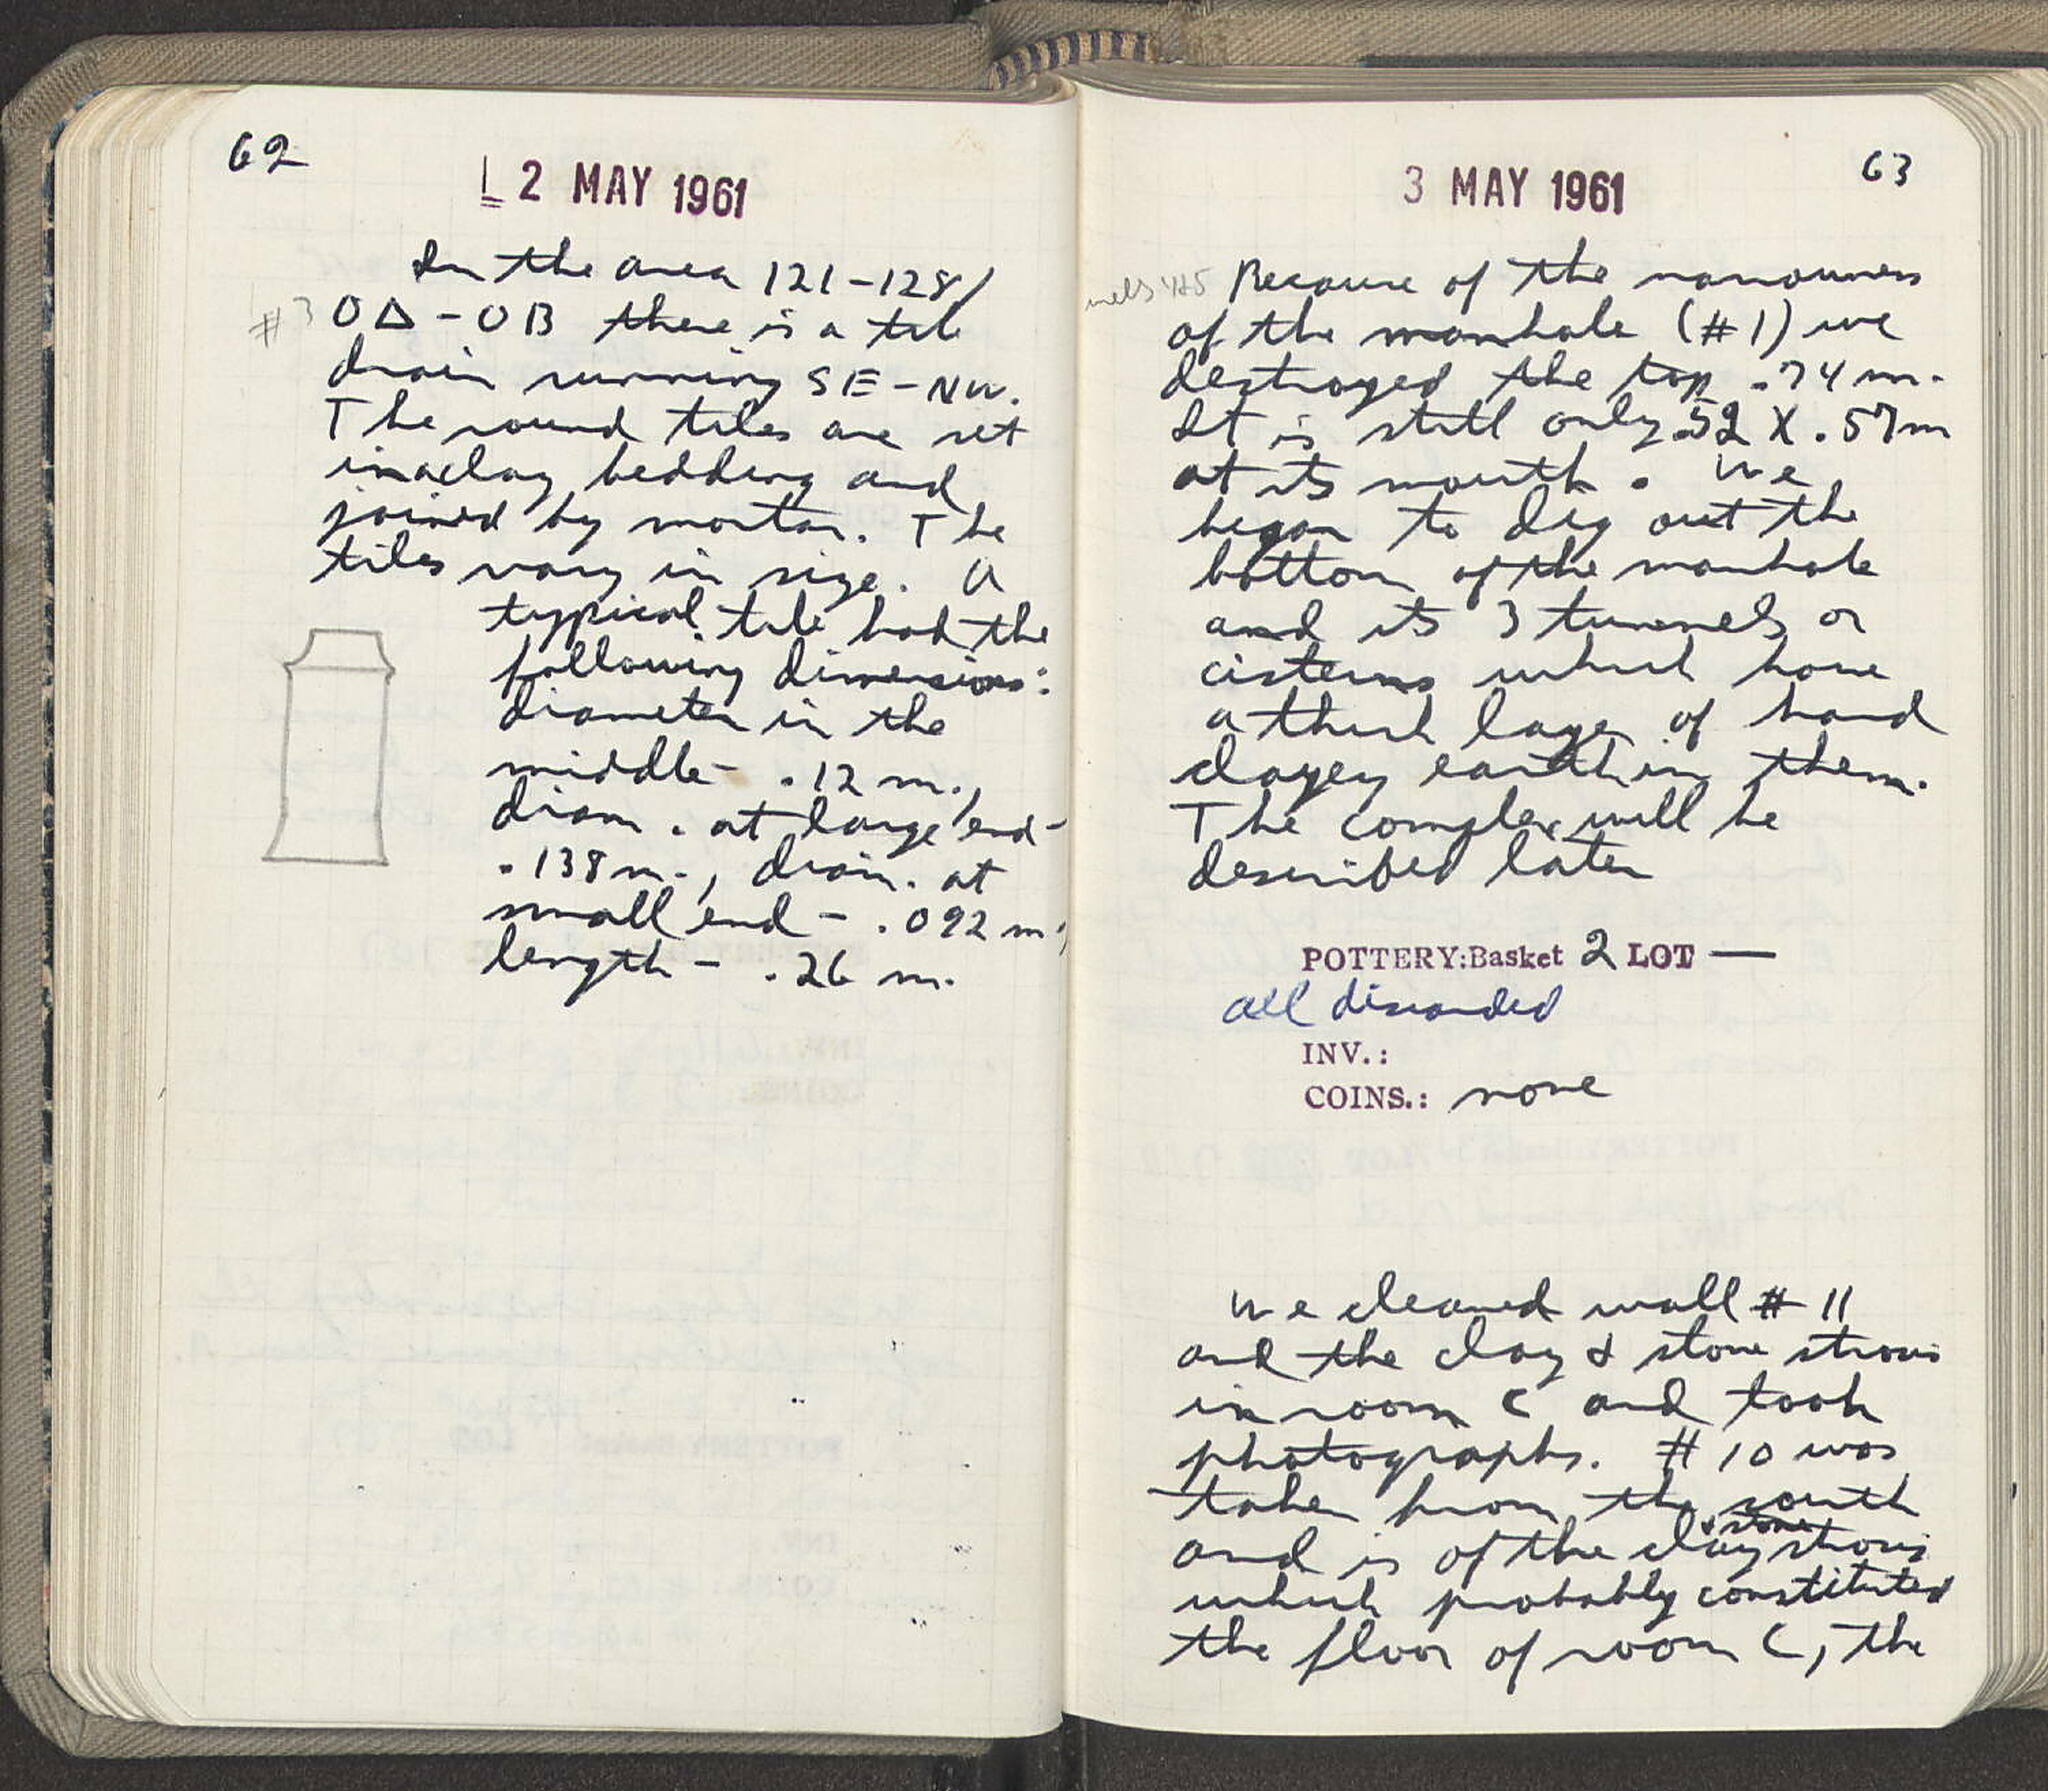 62
2 MAY 1961
In the area 121-128/
# 3 OΔ-OB there is a tile
drain running SE-NW.
The round tiles are set
in a clay bedding and
joined by mortar. The
tiles vary in size. A
typical tile had the
following dimensions:
diameter in the
middle - .12 m.,
diam. at large end -
.138 m., diam. at
small end - .092 m.,
length - .26 m.
63
3 MAY 1961
Because of the narrowness
of the manhole (#1) we
destroyed the top .74 m.
It is still only .52 X .57m
at its mouth. We
began to dig out the
bottom of the manhole
and its 3 tunnels or
cisterns which have
a thick layer of hard
clayey earth in them.
The complex will be
described later
POTTERY: Basket 2 LOT —
all discarded
INV.:
COINS.: none
We cleaned wall # 11
and the clay & stone strosis
in room C and took
photographs. # 10 was
taken from the south
and is of the clay & stone strosis
which probably constituted
the floor of room C, the